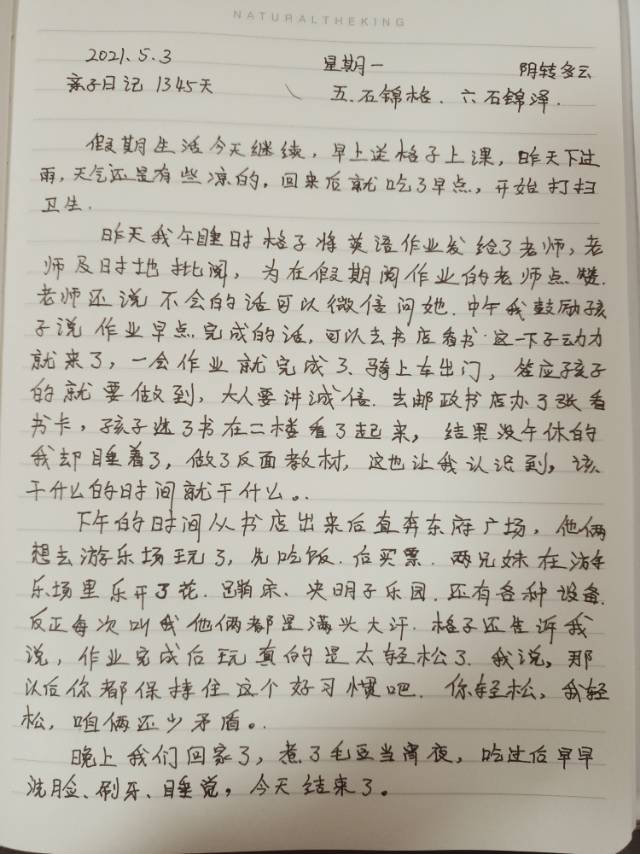 NATURALTHEKING
2021.5.3 星期一 阴转多云
亲子日记 1345天 五.石锦格. 六石锦泽.
假期生活今天继续,早上送格子上课,昨天下过
雨,天气还是有些凉的,回来后就吃了早点,开始打扫
卫生.
昨天我午睡时格子将英语作业发给了老师,老
师及时地批阅,为在假期阅作业的老师点赞.
老师还说不会的话可以微信问她.中午我鼓励孩
子说作业早点完成的话,可以去书店看书.这一下子动力
就来了,一会作业就完成了、骑上车出门,答应孩子
的就要做到,大人要讲诚信.去邮政书店办了张看
书卡,孩子选了书在二楼看了起来,结果没午休的
我却睡着了,做了反面教材,这也让我认识到,该
干什么的时间就干什么。.
下午的时间从书店出来后直奔东府广场,他俩
想去游乐场玩了,先吃饭.后买票.两兄妹在游
乐场里乐开了花.蹦床、决明子乐园.还有各种设备.
反正每次叫我他俩都是满头大汗.格子还告诉我
说,作业完成后玩真的是太轻松了.我说,那
以后你都保持住这个好习惯吧.你轻松,我轻
松,咱俩还少矛盾。.
晚上我们回家了,煮了毛豆当宵夜,吃过后早早
洗脸、刷牙、睡觉,今天结束了。